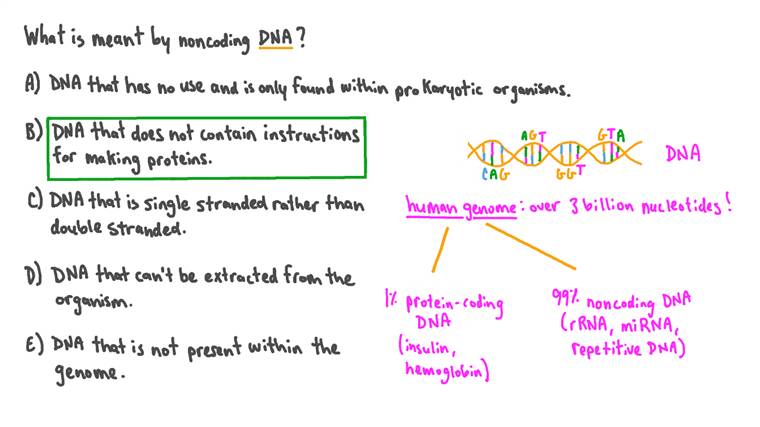 What is meant by noncoding DNA?
A) DNA that has no use and is only found within prokaryotic organisms.
B) DNA that does not contain instructions
for making proteins.
C) DNA that is single stranded rather than
double stranded.
D) DNA that can't be extracted from the
organism.
E) DNA that is not present within the
genome.
AGT
GTA
CAG
GGT
DNA
human genome: over 3 billion nucleotides!
1% protein-coding
DNA
(insulin,
hemoglobin)
99% noncoding DNA
(rRNA, miRNA,
repetitive DNA)